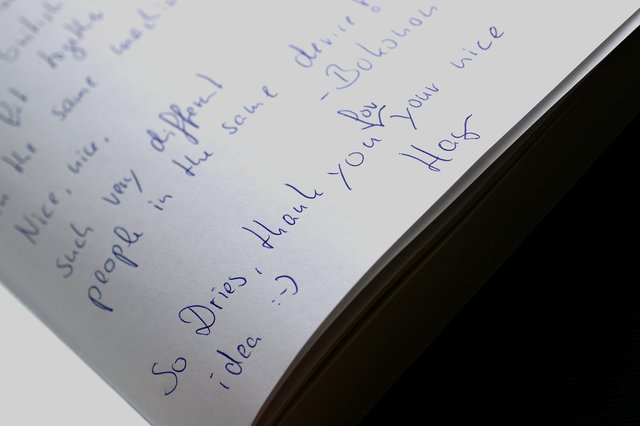 fit together
in the same machine
Nice, nice,
such very different
people in the same device!
- Bokonon
So Dries, thank you for your nice
idea :-)
Hag